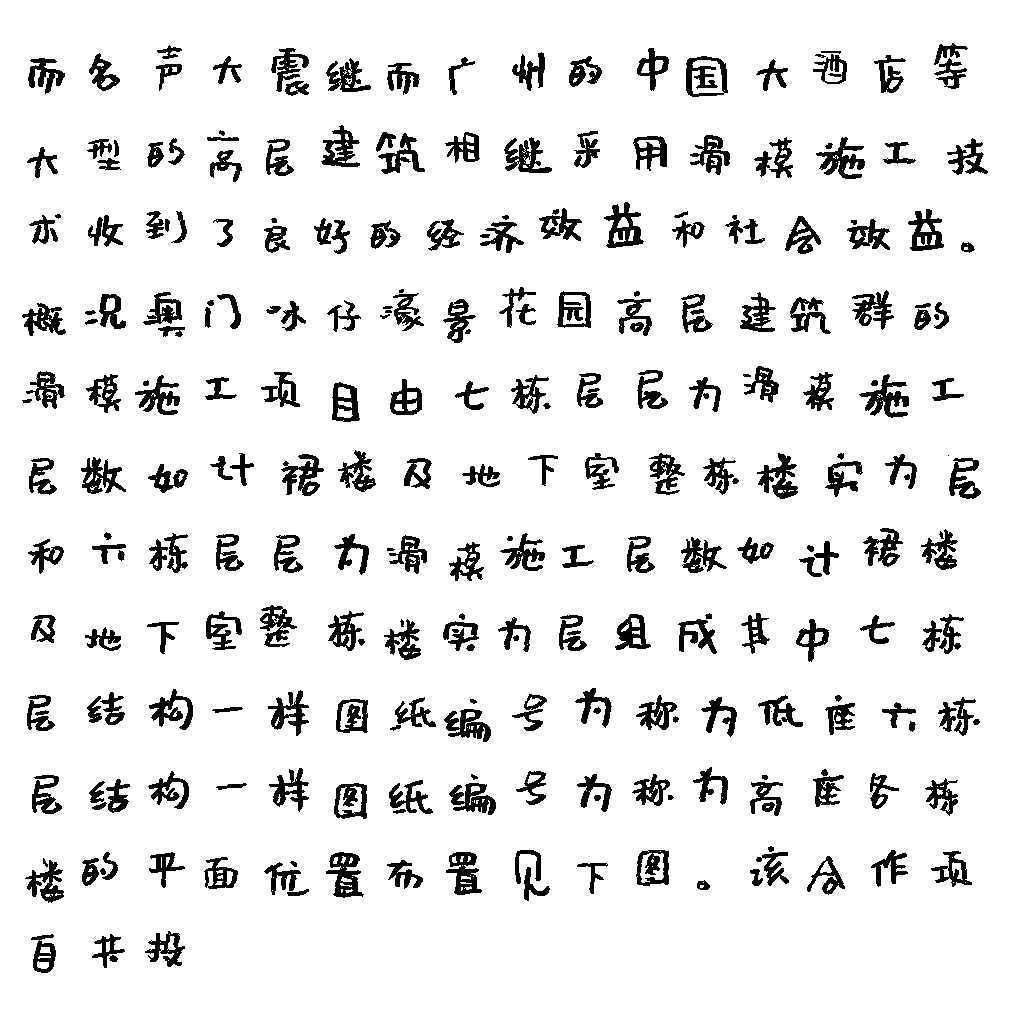 而名声大震继而广州的中国大酒店等
大型的高层建筑相继采用滑模施工技
术收到了良好的经济效益和社会效益。
概况澳门氹仔濠景花园高层建筑群的
滑模施工项目由七栋层层为滑模施工
层数如计裙楼及地下室整栋楼实为层
和六栋层层为滑模施工层数如计裙楼
及地下室整栋楼实为层组成其中七栋
层结构一样图纸编号为称为低座六栋
层结构一样图纸编号为称为高座各栋
楼的平面位置布置见下图。该合作项
目共投